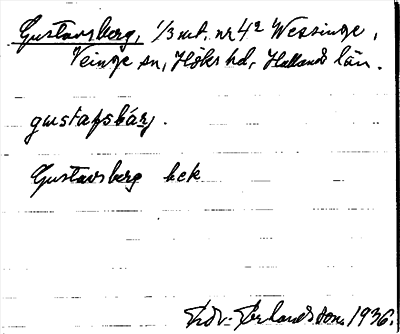 Gustavsberg, 1/3 mt. nr 4² Wessinge,
Veinge sn, Höks hd, Hallands län.
gustafsbärj.
Gustavsberg bek
Erlandsson 1936.